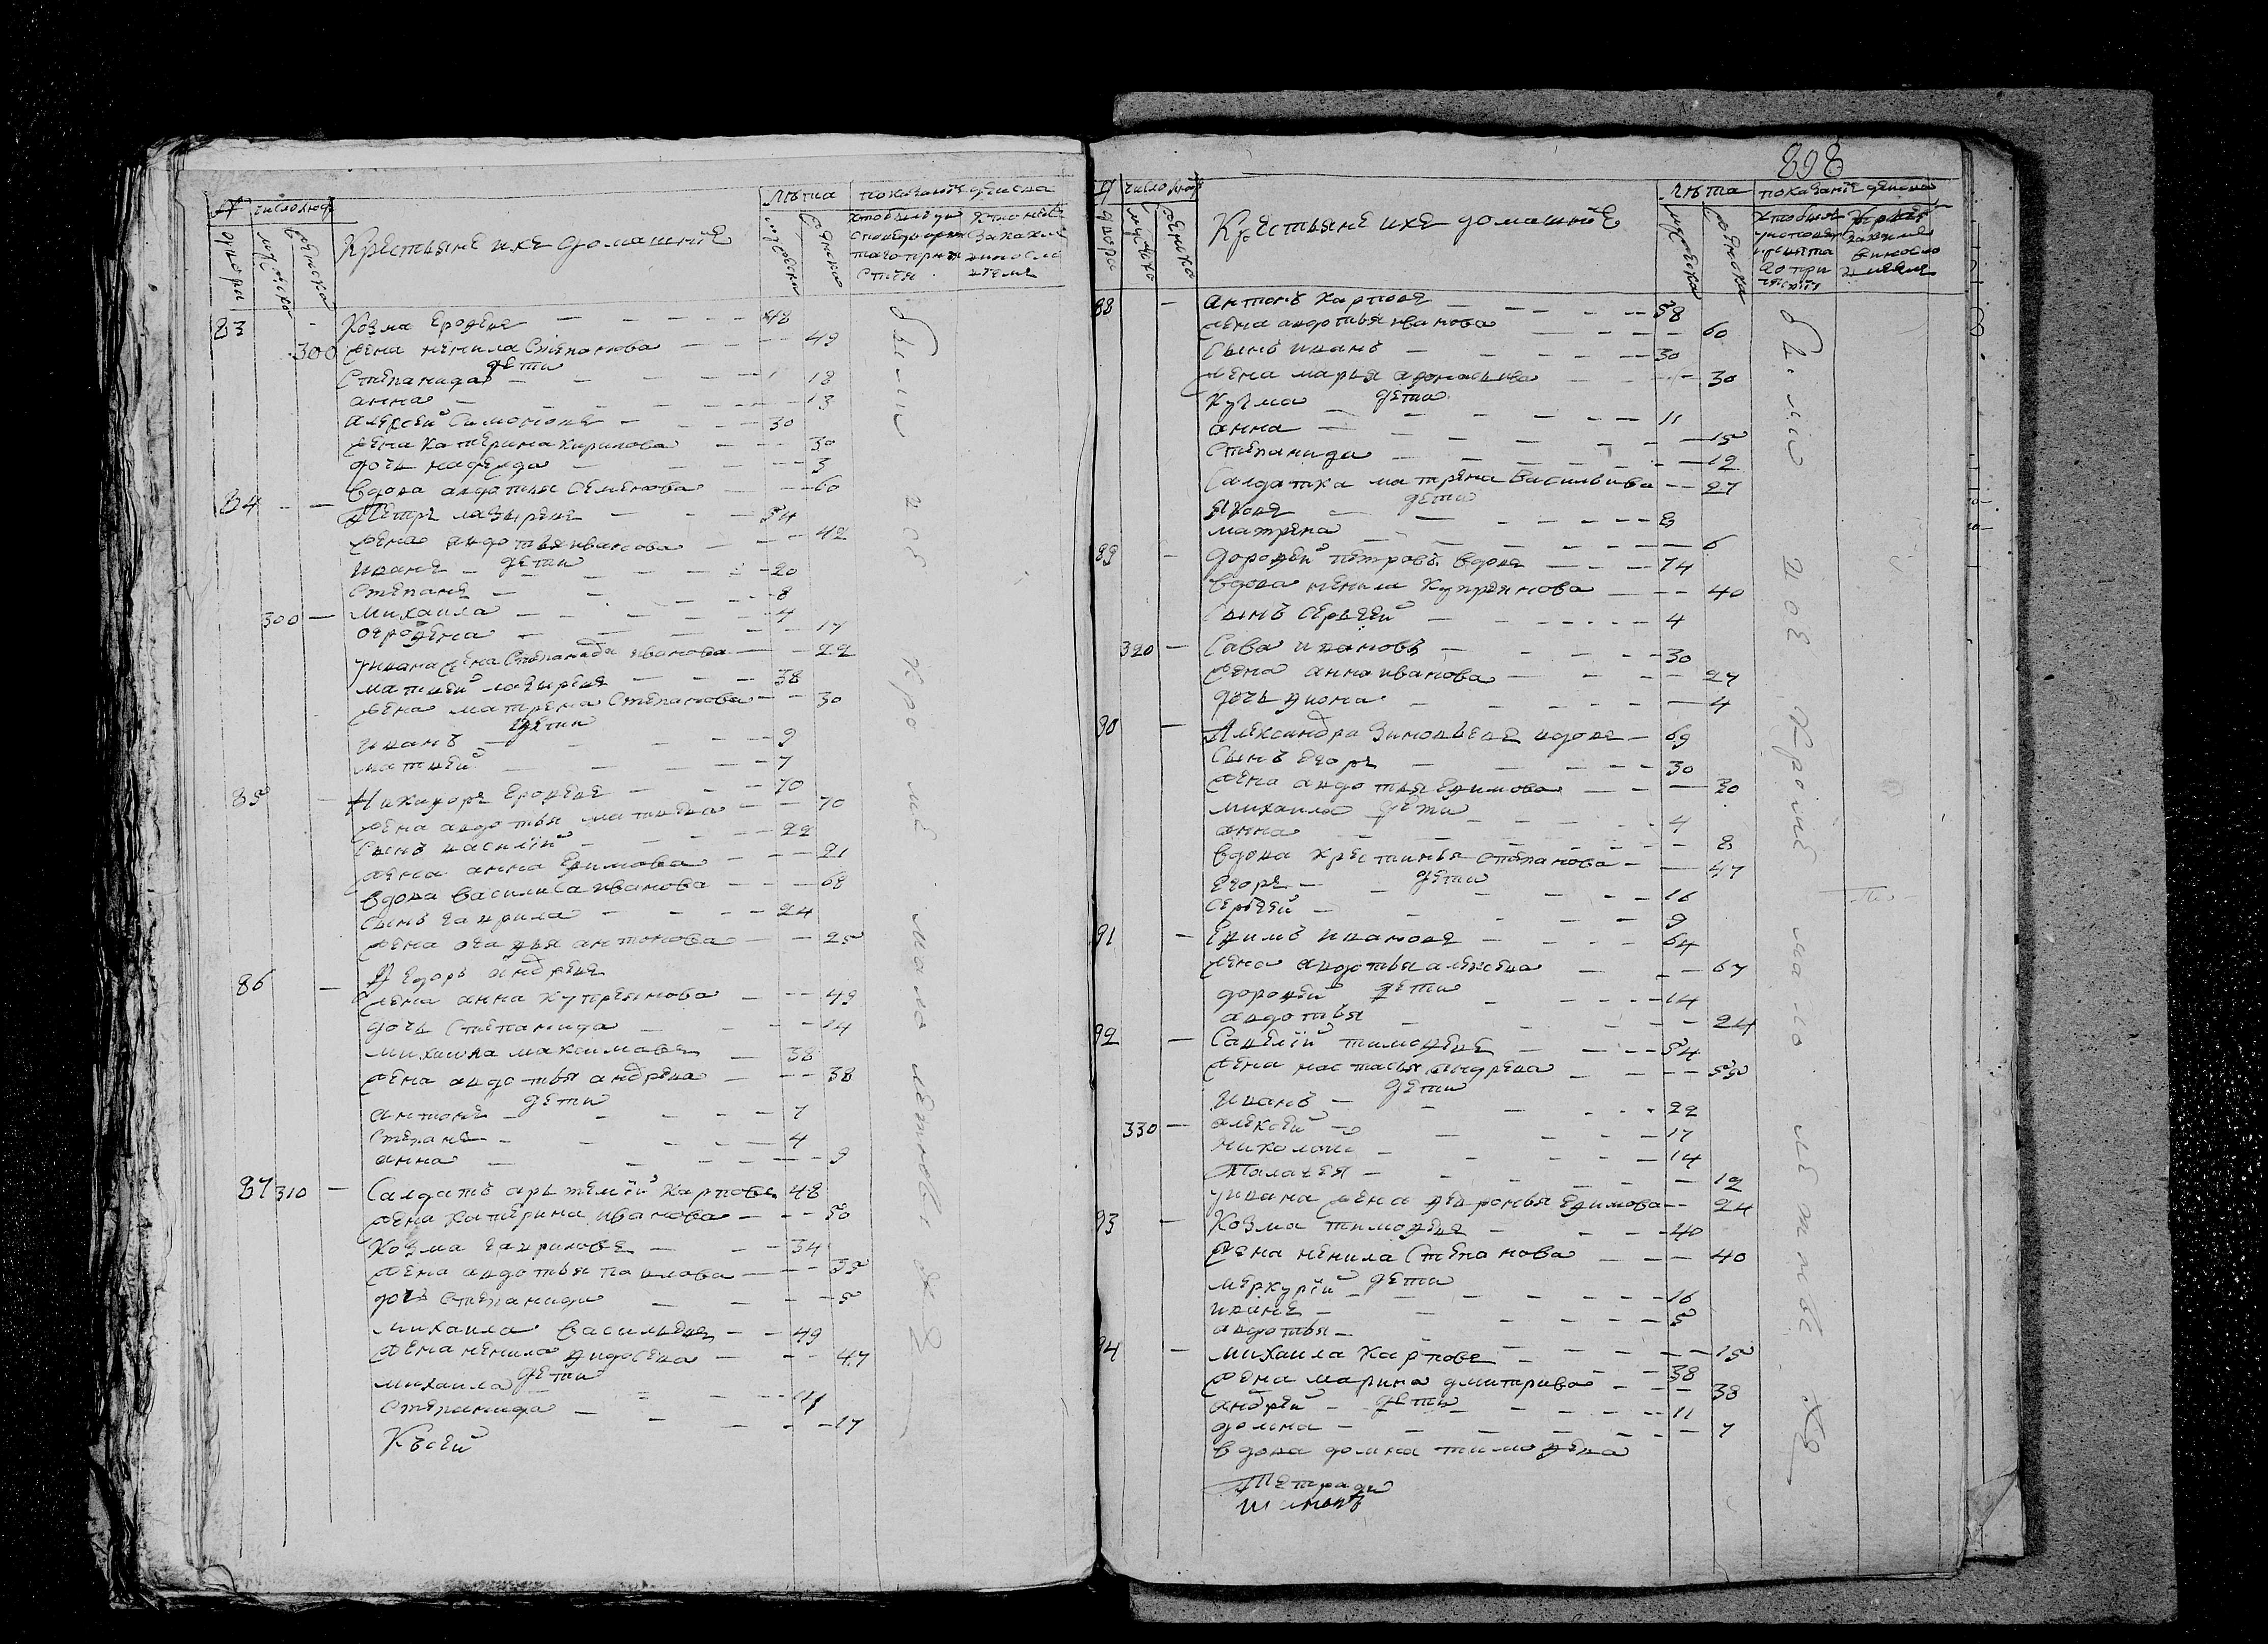 число люд
лѣта
показанiе дѣйства
двора
мужеска
женска
Крестьяне ихъ домашнiе
83 - Козма Ерофеевъ - 48
300 жена ненила Степанова - 49
дети
Степанида - 18
анна - 13
алексей Симоновъ - 30
жена Катерина кирилова - 30
дочь надежда - 3
вдова авдотья Семенова - 60
84 - Петръ лазыревъ - 54
жена авдотья иванова - 42
иванъ - дети - 20
Степанъ - 8
300 - михаила - 4
огрофена - 17
у ивана жена Степанида иванова - 22
матвей лазыревъ - 38
жена матрена Степанова - 30
дети
иванъ - 9
матвей - 7
85 - Никифоръ Ерофеевъ - 70
жена авдотья матвева - 70
Сынъ василiй - 22
жена анна Ефимова - 21
вдова василиса иванова - 68
Сынъ гаврила - 24
жена огафья антонова - 25
86 - Федоръ андревъ
жена анна купреянова - 49
дочь Степанида - 14
михаила максимовъ - 38
жена авдотья андрева - 38
дети
антонъ - 7
Степанъ - 4
анна - 9
87 310 - Салдатъ артемiй Карповъ 48
жена Катерина иванова - 50
Козма гавриловъ - 34
жена авдотья павлова - 35
дочь Степанида - 5
михаила васильевъ - 49
жена ненила фидосева - 47
дети
михаила - 11
Степанида - 17
были исе кроме малолетновъ
Къ сей
898
число люд
лѣта
показанiе дѣйства
двора
мужеска
женска
Крестьяне ихъ домашнiе
88 - антонъ Карповъ - 58
жена авдотья иванова - 60
Сынъ иванъ - 30
жена марья афонасьива - 30
дети
Кузма - 11
анна - 15
Степанида - 12
Салдатка матрена Васильива - 27
дети
яковъ - 8
матрена - 6
89 - дорофей петровъ вдовъ - 74
вдова ненила Купреянова - 40
Сынъ Сергей - 4
320 - Сава ивановъ - 30
жена анна иванова - 27
дочь фиона - 4
90 - Александра Зиновьевъ вдовъ - 69
Сынъ Егоръ - 30
жена авдотья Ефимова - 30
михаила дети - 4
анна - 8
вдова Крестинья Степанова - 47
Егоръ - дети - 16
Сергей - 9
91 - Ефимъ ивановъ - 64
жена авдотья алексева - 67
дорофей дети - 14
авдотья - 24
92 - Савелiй тимофевъ - 54
жена настасья андрева - 55
дети
иванъ - 22
330 - алексей - 17
николай - 14
Палагея - 12
у ивана жена федронья Ефимова - 24
93 - Козма тимофевъ - 40
жена ненила Степанова - 40
меркурiй дети - 16
иванъ - 5
авдотья - 15
94 - михаила Карповъ - 38
жена марина дмитрива - 38
андрей - дети - 11
домна - 7
вдова домна тимофева
были исе кроме малолетновъ
Тетради